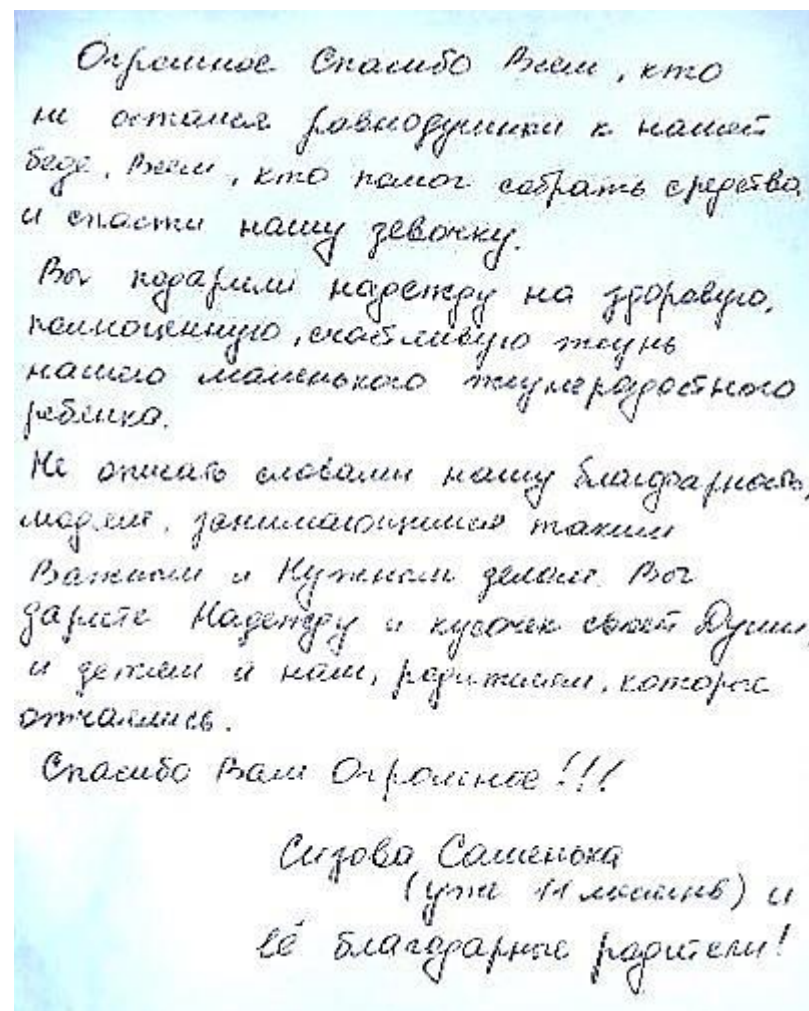 Огромное Спасибо Всем, кто
не остался равнодушным к нашей
беде. Всем, кто помог собрать средства
и спасти нашу девочку.
Вы подарили надежду на здоровую,
полноценную, счастливую жизнь
нашего маленького жизнерадостного
ребенка.
Не описать словами нашу благодарность,
людям, занимающимся таким
Важным и Нужным делом. Вы
дарите Надежду и кусочек своей Души,
и детям и нам, родителям, которые
отчаялись.
Спасибо Вам Огромное!!!
Сизова Сашенька
(уже 11 месяцев) и
её благодарные родители!